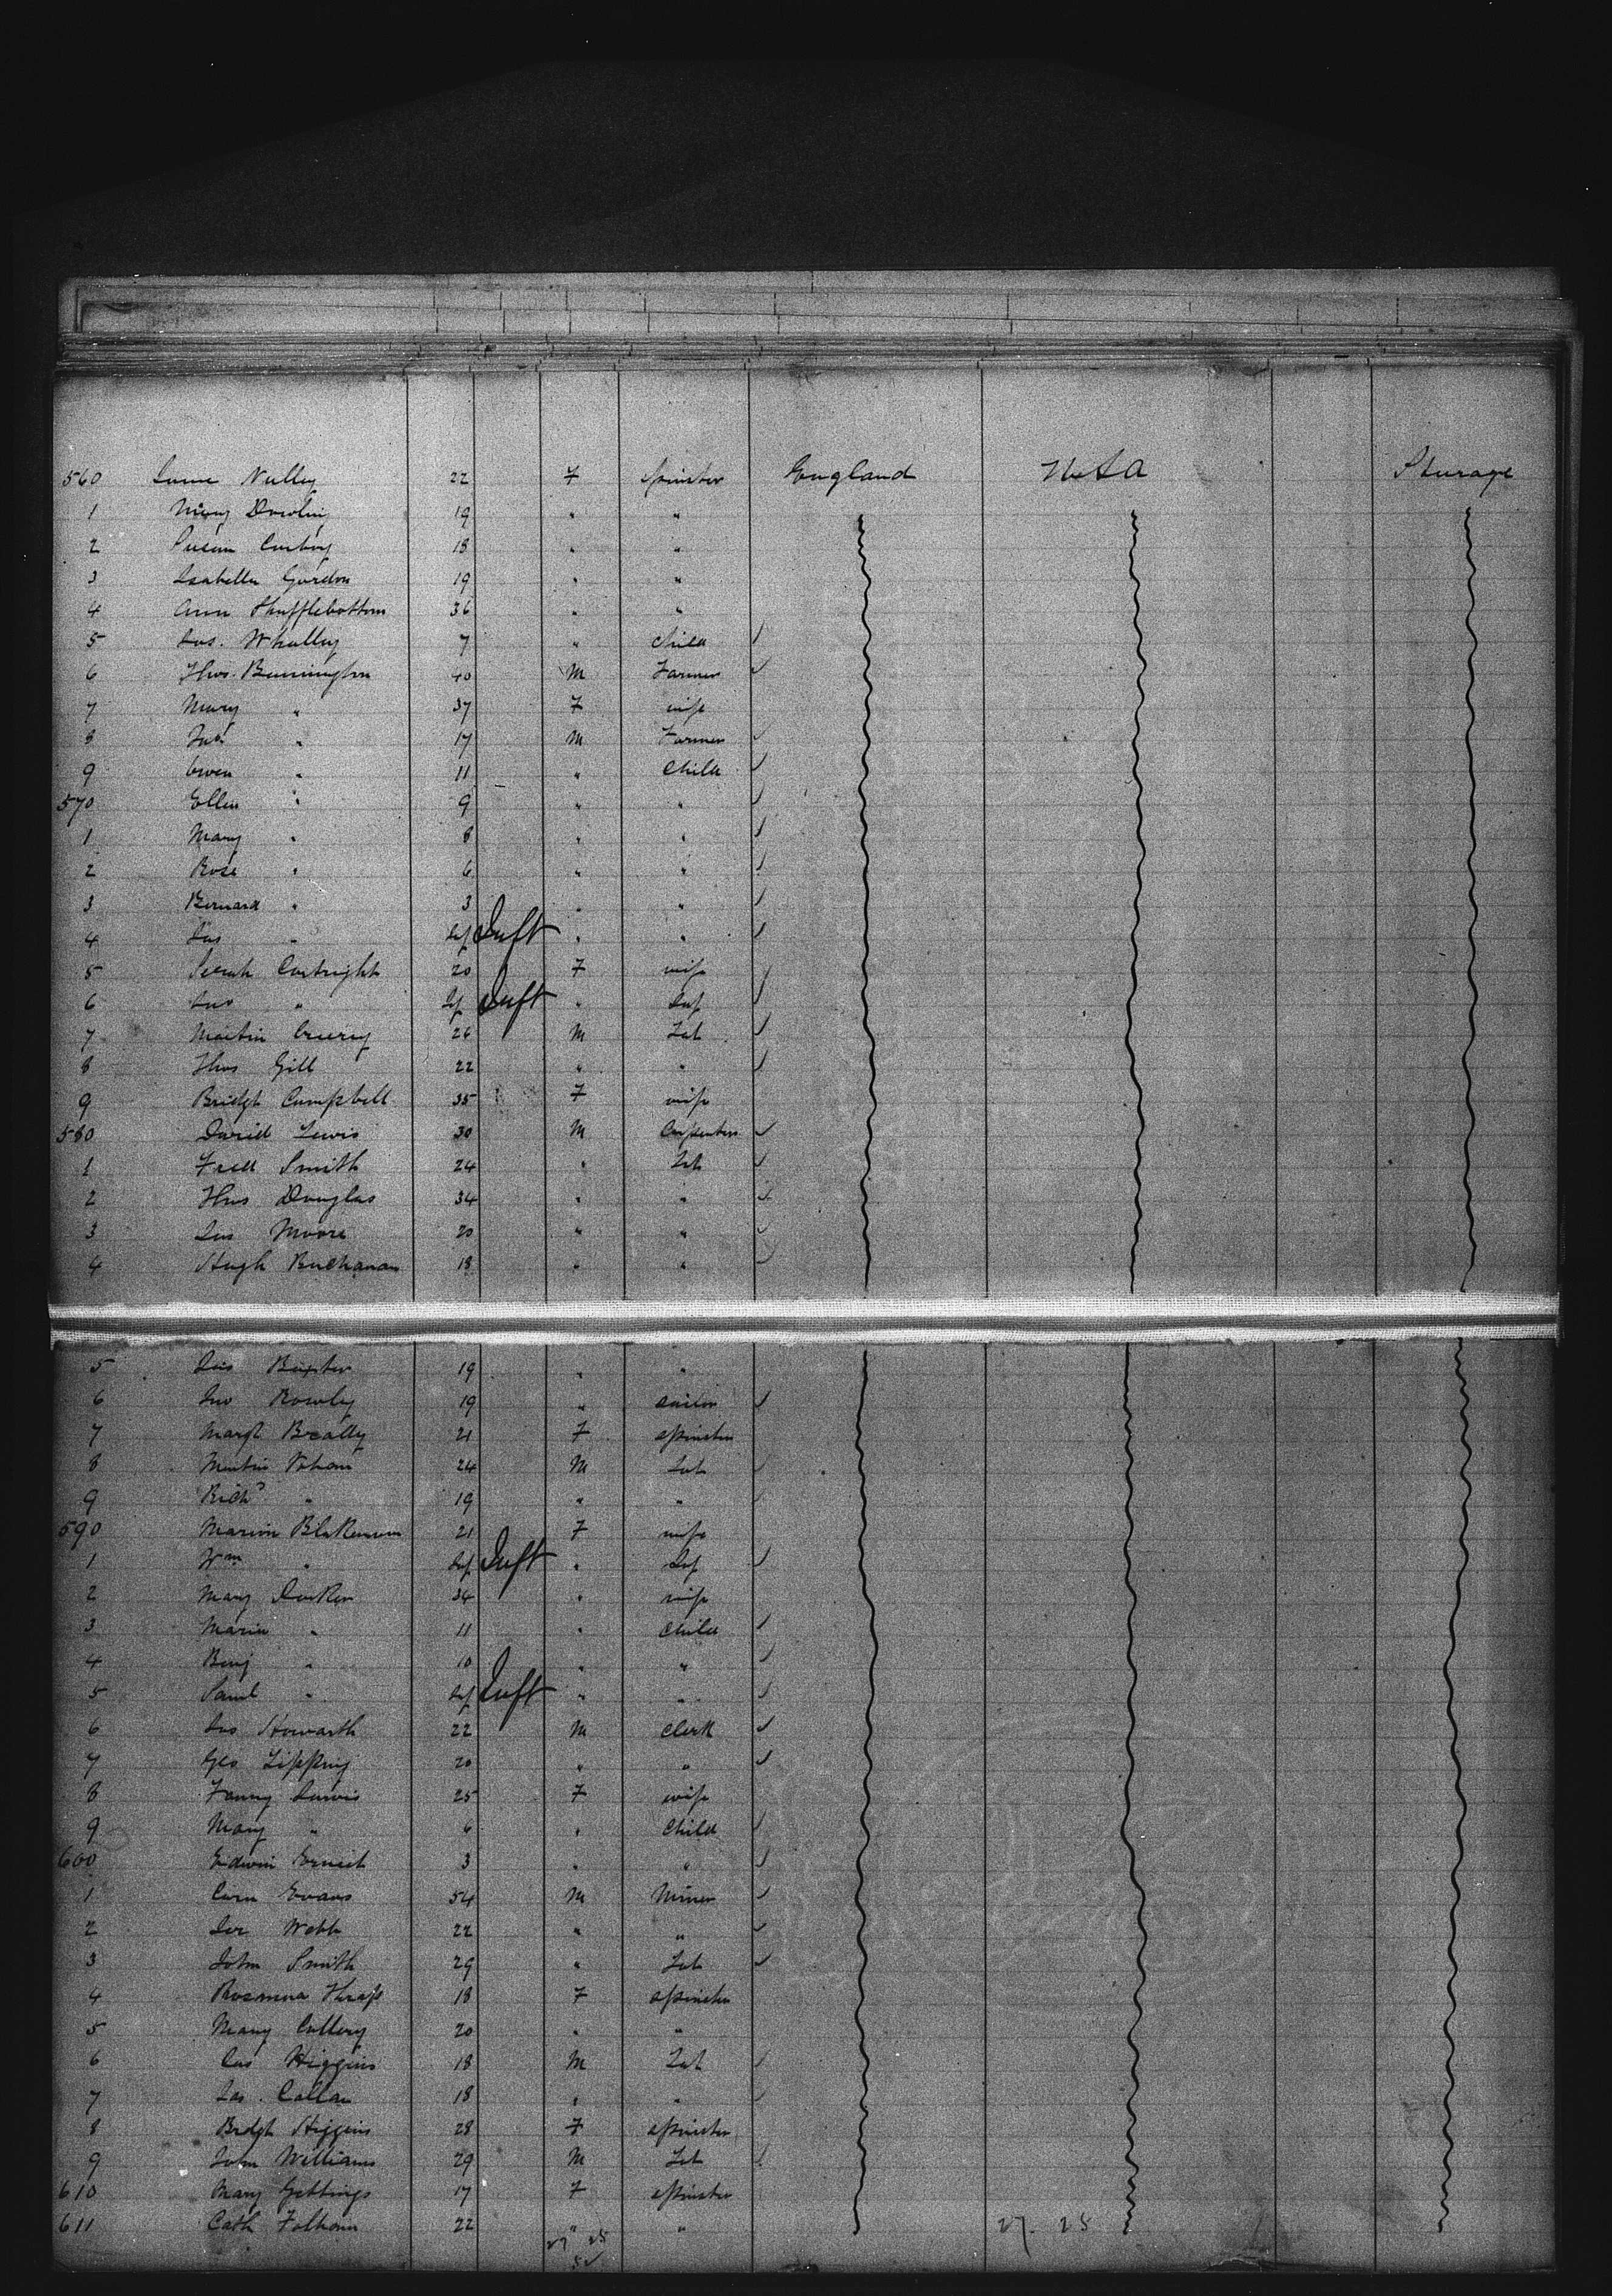 560 Nulley 22 F Spinster England USA Steerage
1 Mary Dowling 19 " "
2 Susan 18 " "
3 Isabella Gordon 19 " "
4 Ann Shufflebottom 36 " "
5 Jas. Whalley 7 " Child
6 Thos. Bennington 40 M Farmer
7 Mary " 37 F wife
8 Jno " 17 M Farmer
9 Owen " 11 " Child
570 Ellen " 9 " "
1 Mary " 8 " "
2 Rose " 6 " "
3 Bernard " 3 " "
4 Jas " Inf Inft " "
5 Sarah Cartright 20 F wife
6 Jno " Inf Inft " Inf
7 Martin 26 M Lab
8 Thos Gill 22 " "
9 Bridgt Campbell 35 F wife
580 David Lewis 30 M Carpenter
1 Fred Smith 24 " Lab
2 Thos Douglas 34 " "
3 Jas Moore 20 " "
4 Hugh Buchanan 18 " "
5 Jas Baxter 19 " "
6 Jno Rowley 19 " sailor
7 Margt 21 F spinster
8 Martin 24 M Lab
9 Richd " 19 " "
590 Marion 21 F wife
1 Wm " Inf Inft " Inf
2 Mary 34 " wife
3 " 11 " Child
4 Benj " 10 " "
5 Saml " Inf Inft " "
6 Jas Howarth 22 M Clerk
7 Geo 20 " "
8 Fanny 25 F wife
9 Mary " 6 " Child
600 Edwin Ernest 3 " "
1 Evans 54 M Miner
2 Webb 22 " "
3 John Smith 29 " Lab
4 18 F spinster
5 Mary Cullery 20 " "
6 Higgins 18 M Lab
7 Jas. Callan 18 " "
8 Bridgt Higgins 28 F spinster
9 John Williams 29 M Lab
610 Mary Gettings 17 F spinster
611 Cath 22 " "
27. 25
27 25
52